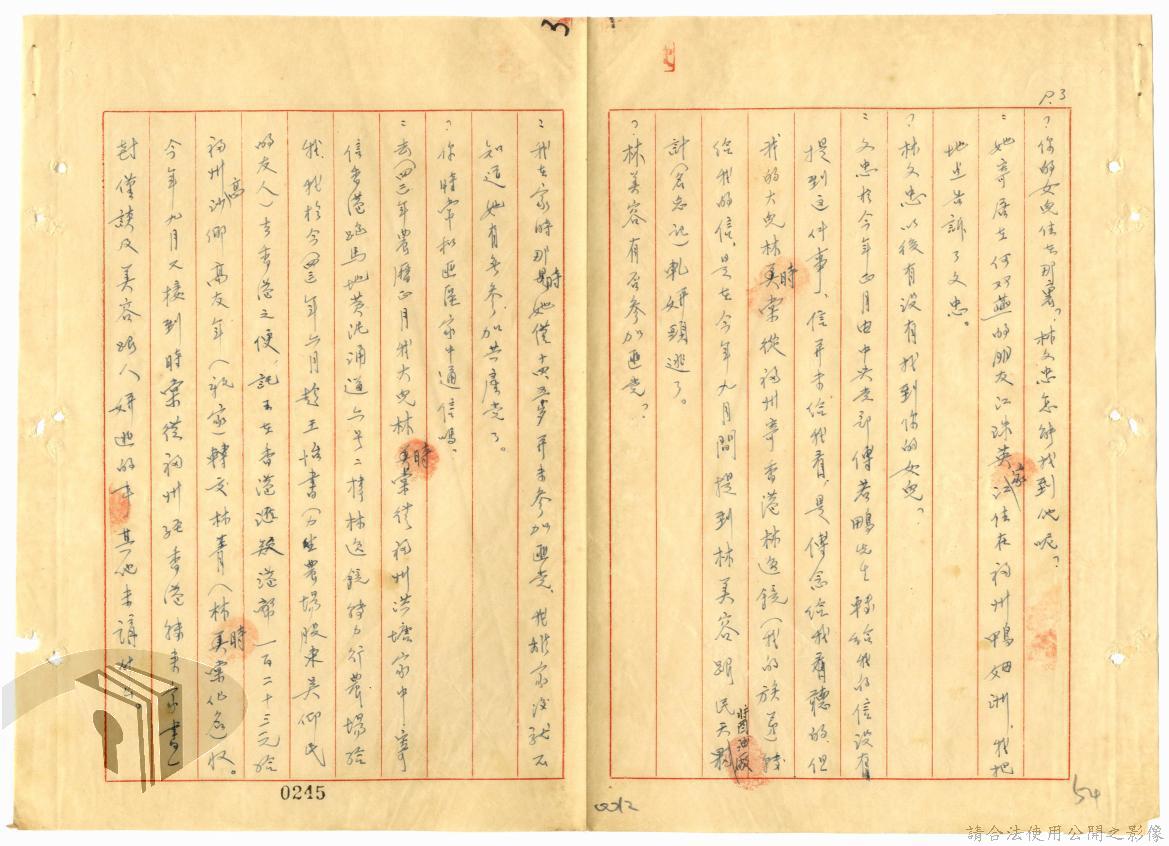 P.3
？你的女兒住在那裏？林文忠怎能找到他呢？
：她寄居在何邓燕的朋友江珠英家，江住在福州鴨姆洲，我把
地止告訴了文忠。
？林文忠以後有没有找到你的女兒？
：文忠於今年正月由中央党部傅若鵬先生轉給我的信没有
提到这件事，信并未给我看，是傅念给我看聽的，但
我的大兒林時棠從福州寄香港林逸鏡（我的族弟）轉
给我的信，是在今年九月間提到林美容跟民天醬油厰
計（名忘記）軋姘頭逃了。
？林美容有否参加匪党？
54
0012
3
：我在家時那時她僅十四五岁并未参加匪党，我離家後就不
知道她有無参加共產党了。
？你時常和匪區家中通信嗎？
：去（四三）年農曆正月我大兒林時棠從福州洪塘家中寄
信香港跑馬地黄泥涌道六号二樓林逸鏡轉力行農場给
我，我於今（四三）年六月趁王怡書（力生農場股東吴仰民
的友人）去香港之便，託王在香港逃疑港幣一百二十三元给
福州高沙鄉高友年（親家）轉交林青（林時棠化名）收。
今年九月又接到時棠從福州經香港轉來家書一
封僅談及美容跟人姘逃的事，其他未講什么。
0245
請合法使用公開之影像